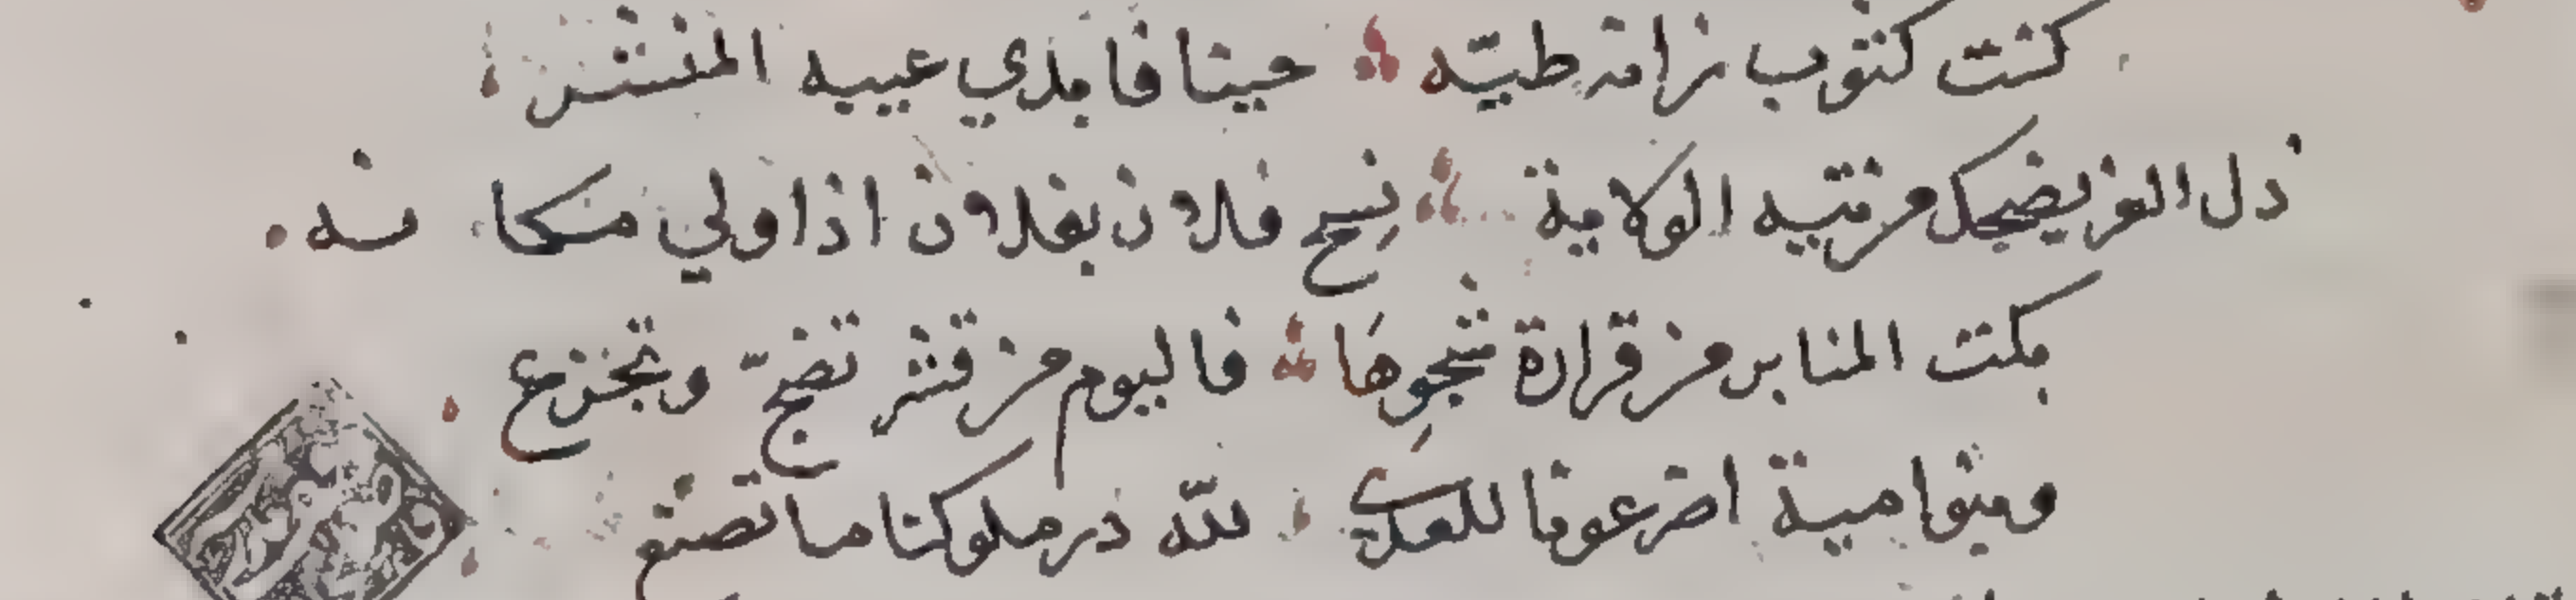 كنت كثوب زانه طيّه حينا فابدي عيبه المنتشر
ذل العزيضحك من تيه الولاية نسج فلان بفلان اذا ولي مكا نه
بكت المنابر من فزارة شجوها فاليوم من قشر تضجّ وتجزع
وبنوا مية اضرعونا للعدي لله در ملوكنا ما تصنع